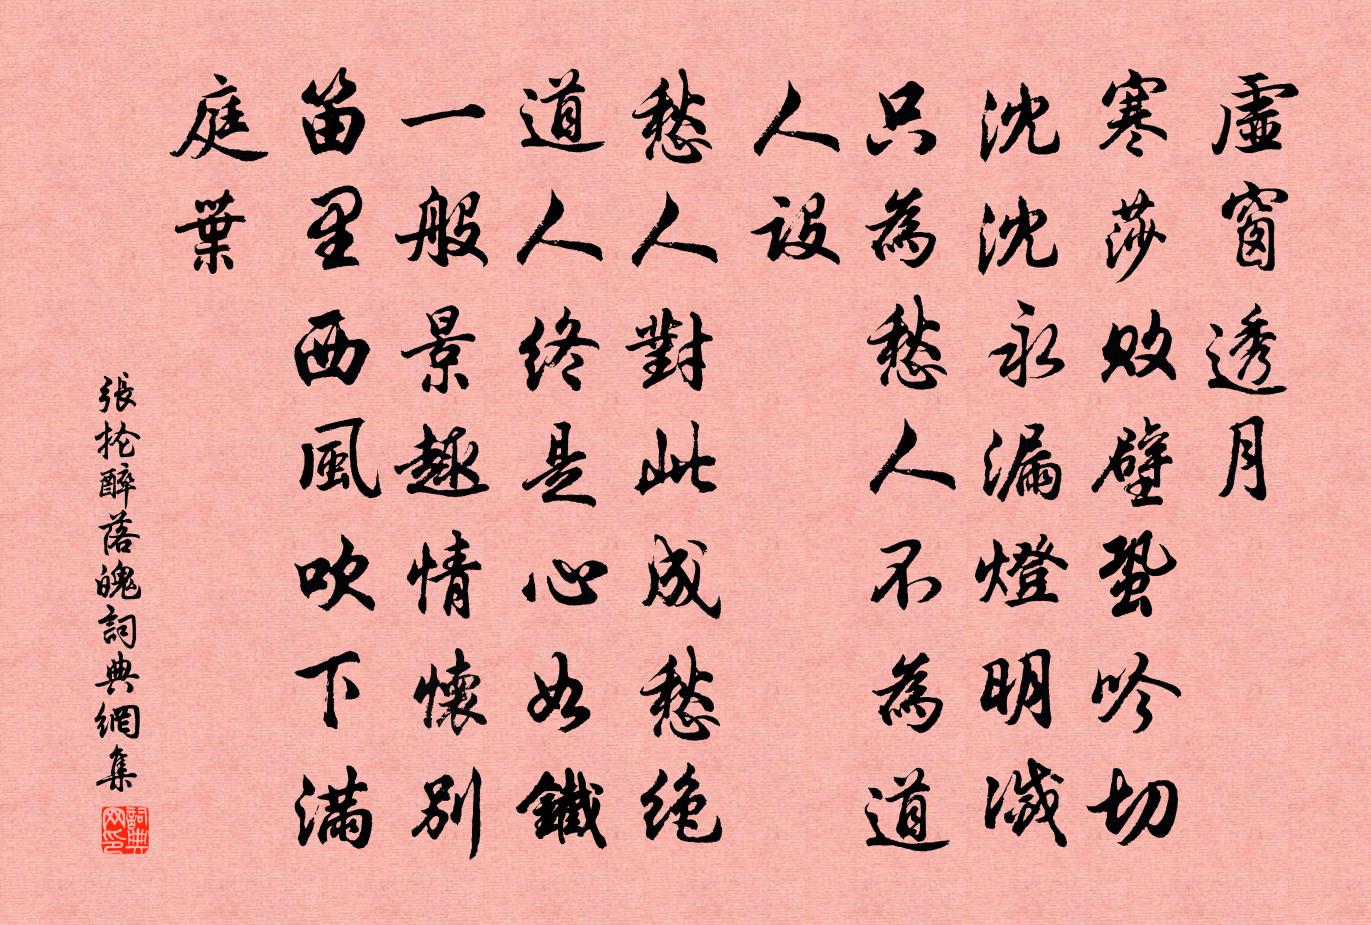 虛窗透月
寒莎敗壁蛩吟切
沈沈永漏燈明滅
只為愁人不為道
人設
愁人對此成愁絶
道人終是心如鐵
一般景趣情懷別
笛里西風吹下滿
庭葉
張掄醉落魄詞典網集
詞典网印